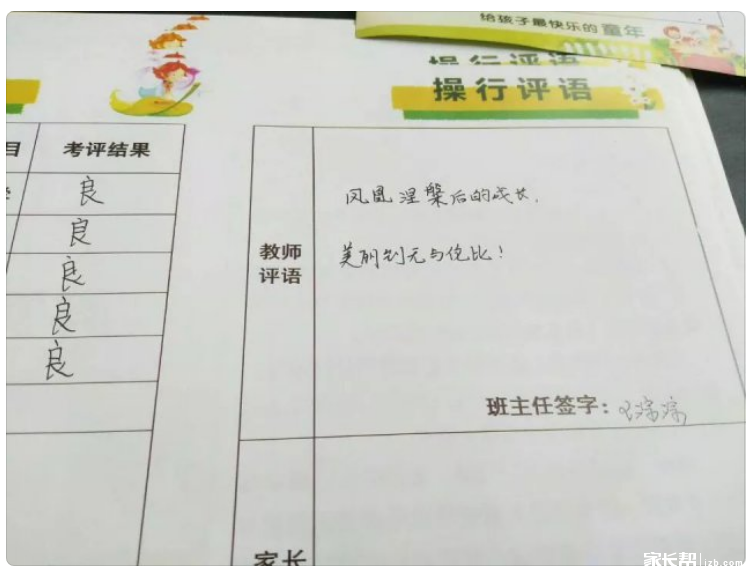 给孩子最快乐的童年
操行评语
操行评语
目 考评结果
良
良
良
良
良
教师
评语
凤凰涅槃后的成长,
美丽到无与伦比!
班主任签字:
家长
家长帮 jzb.com